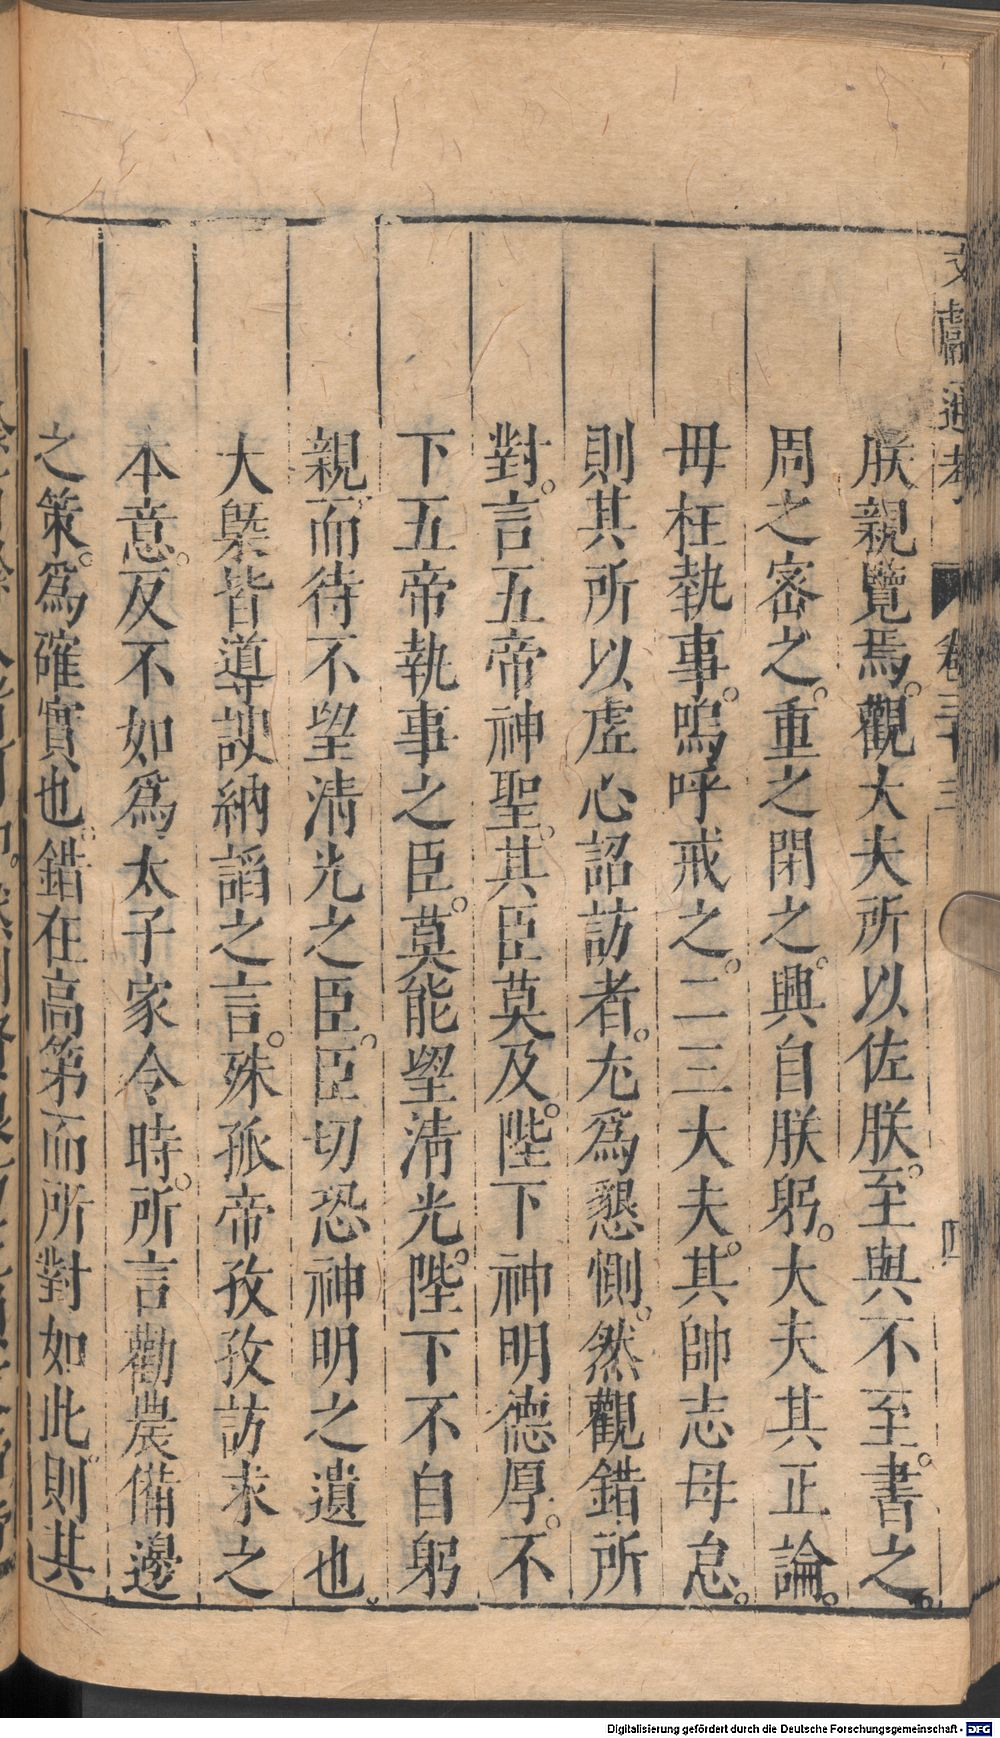 文獻通考 卷三十三 四
朕親覽焉。觀大夫所以佐朕。至與不至。書之。
周之密之。重之閉之。興自朕躬。大夫其正論。
毋枉執事。嗚呼戒之。二三大夫。其帥志毋怠。
則其所以虛心詔訪者。尤爲懇惻。然觀錯所
對。言五帝神聖。其臣莫及。陛下神明德厚。不
下五帝執事之臣。莫能望清光。陛下不自躬
親。而待不望清光之臣。臣切恐神明之遺也。
大槩皆導諛納謟之言。殊孤帝孜孜訪求之
本意。反不如爲太子家令時。所言勸農備邊
之策。爲確實也。錯在高第而所對如此。則其
Digitalisierung gefördert durch die Deutsche Forschungsgemeinschaft - DFG